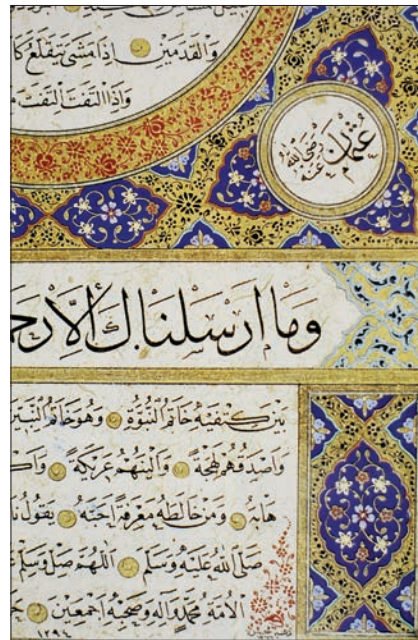 والقدمين اذا مشى يتقلع كا
واذا التفت التفت
عثمان رضي الله عنه
وما ارسلناك الا رحـ
بين كتفيه خاتم النبوة وهو خاتم النبيين
واصدقهم لهجة والينهم عريكة واكـ
هابه ومن خالطه معرفة احبه يقول نا
صلى الله عليه وسلم اللهم صل وسلم
الامة محمد وآله وصحبه اجمعين
١٢٩٤